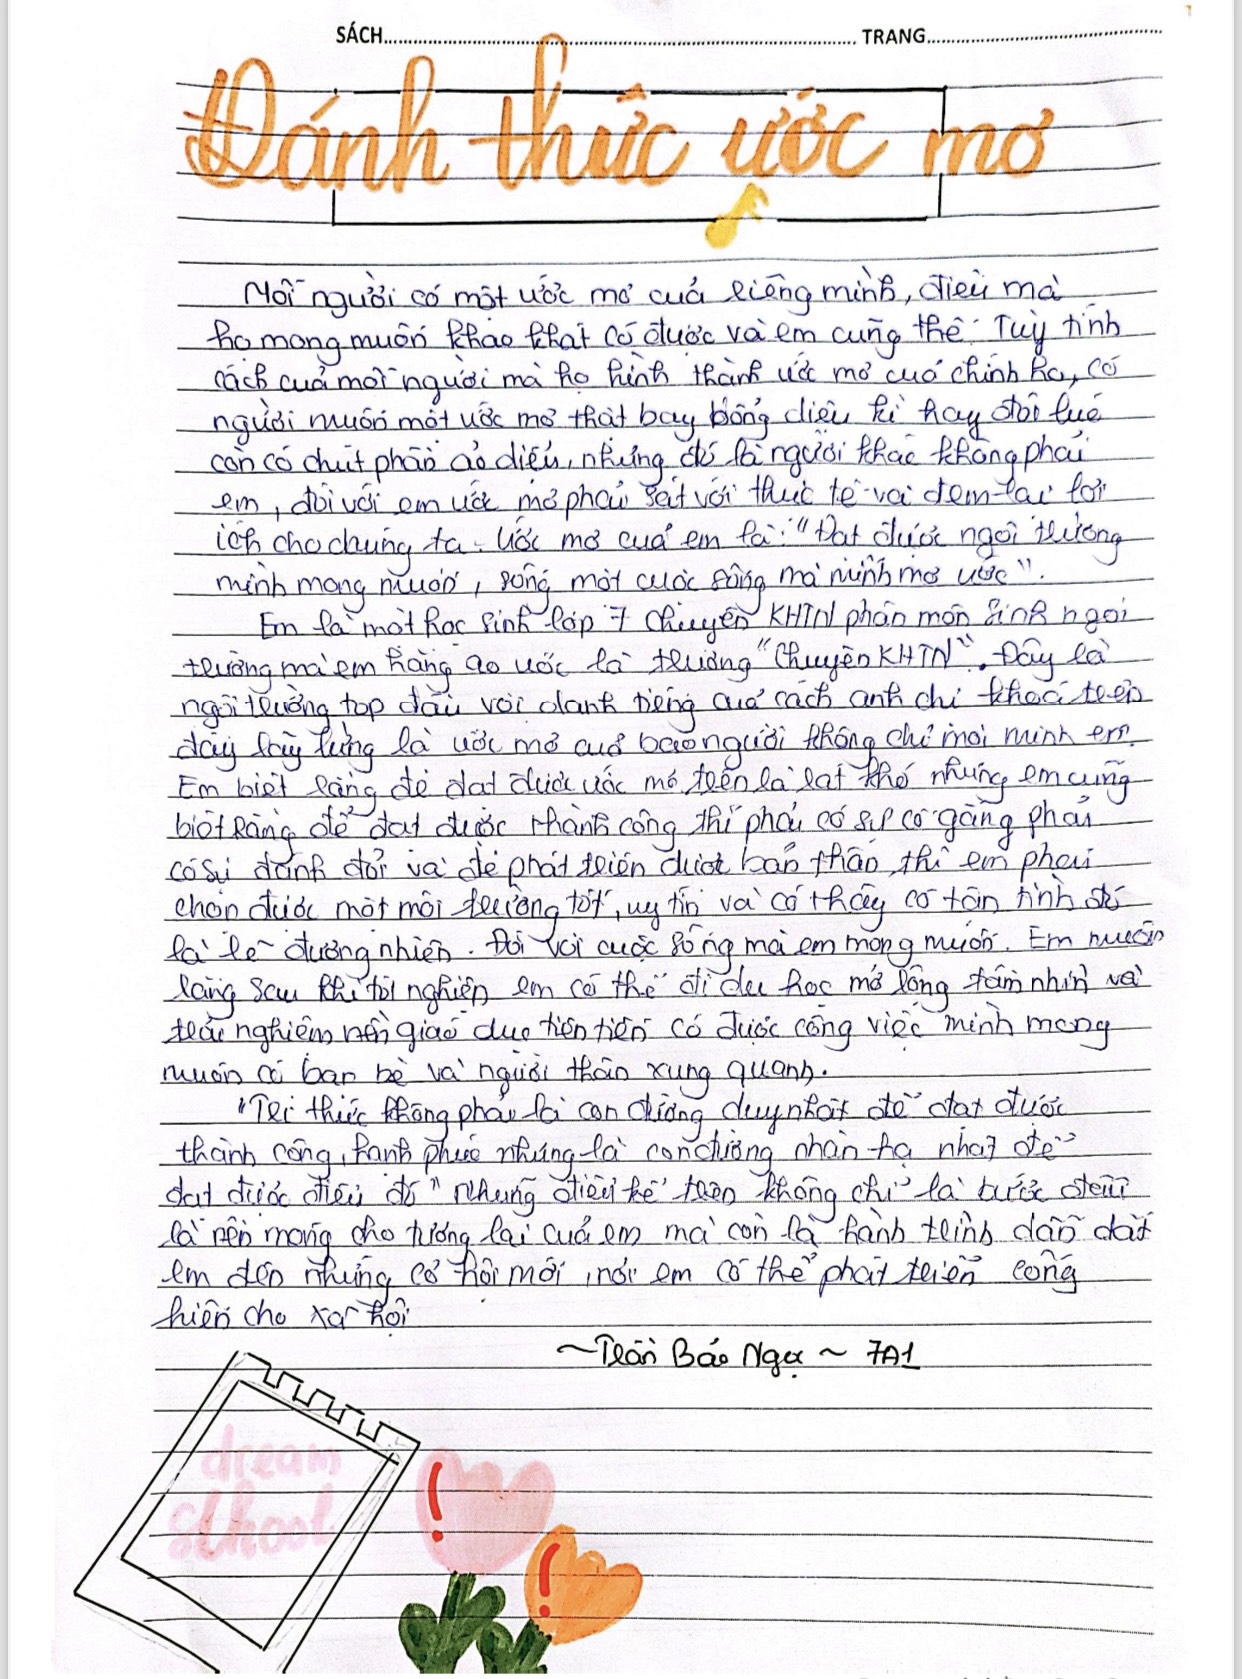 SÁCH TRANG
Đánh thức ước mơ
Mỗi người có một ước mơ của riêng mình, điều mà
họ mong muốn khao khát có được và em cũng thế. Tuỳ tính
cách của mỗi người mà họ hình thành ước mơ của chính họ, có
người muốn một ước mơ thật bay bổng diệu kì hay đôi lúc
còn có chút phần ảo diệu, nhưng đó là người khác không phải
em, đối với em ước mơ phải sát với thực tế và đem lại lợi
ích cho chúng ta. Ước mơ của em là: "Đạt được ngôi trường
mình mong muốn, sống một cuộc sống mà mình mơ ước".
Em là một học sinh lớp 7 chuyên KHTN phân môn sinh ngôi
trường mà em hằng ao ước là trường "Chuyên KHTN". Đây là
ngôi trường top đầu với danh tiếng của cách anh chị khoá trên
dày lẫy lừng là ước mơ của bao người không chỉ mỗi mình em.
Em biết rằng để đạt được ước mơ trên là rất khó nhưng em cũng
biết rằng để đạt được thành công thì phải có sự cố gắng phải
có sự đánh đổi và để phát triển được bản thân thì em phải
chọn được một môi trường tốt, uy tín và có thầy cô tận tình đó
là lẽ đương nhiên. Đối với cuộc sống mà em mong muốn. Em muốn
rằng sau khi tốt nghiệp em có thể đi du học mở rộng tầm nhìn và
trải nghiệm nền giáo dục tiên tiến có được công việc mình mong
muốn có bạn bè và người thân xung quanh.
"Tri thức không phải là con đường duy nhất để đạt được
thành công, hạnh phúc nhưng là con đường nhàn hạ nhất để
đạt được điều đó" những điều kể trên không chỉ là bước đệm
là nền móng cho tương lai của em mà còn là hành trình dẫn dắt
em đến những cơ hội mới, nơi em có thể phát triển cống
hiến cho xã hội
~Trần Bảo Ngọc ~ 7A1
dream
school